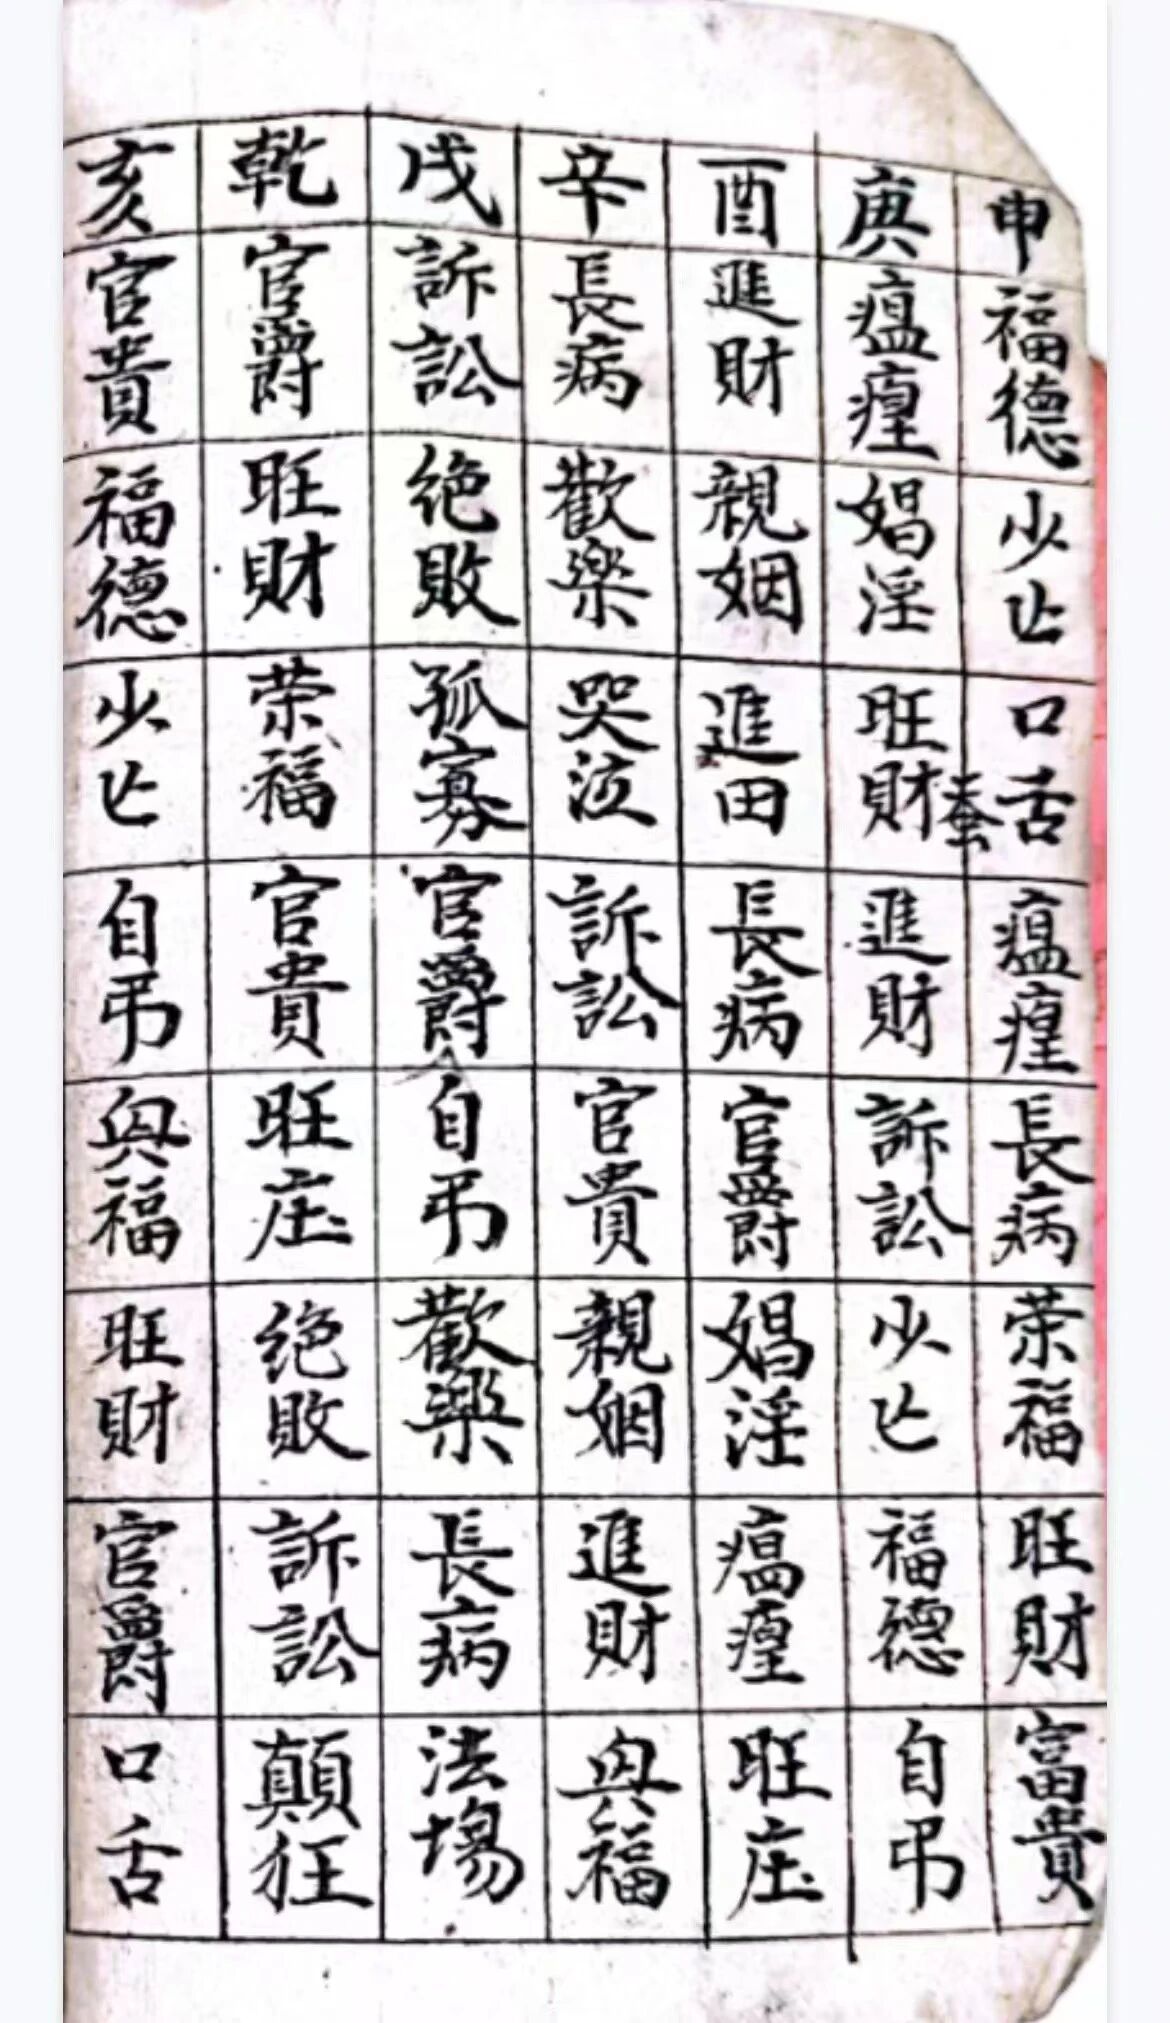 申 福德 少亡 口舌 瘟𤶊 長病 荣福 旺財 富貴
庚 瘟𤶊 娼淫 旺財 蚕 進財 訴訟 少亡 福德 自吊
酉 進財 親姻 進田 長病 官爵 娼淫 瘟𤶊 旺庄
辛 長病 歡樂 哭泣 訴訟 官貴 親姻 進財 兴福
戌 訴訟 絶敗 孤寡 官爵 自吊 歡樂 長病 法場
乾 官爵 旺財 荣福 官貴 旺庄 絶敗 訴訟 顛狂
亥 官貴 福德 少亡 自吊 兴福 旺財 官爵 口舌